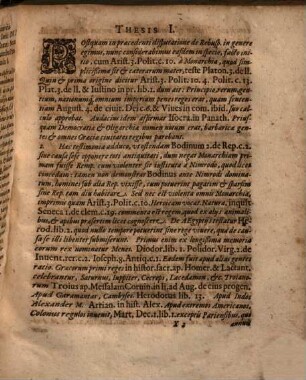 THESIS I.
POstquam in præcedenti disputatione de Rebusp. in genere
egimus, nunc considerabimus easdem in specie, facto initio,
cum Arist. 3. Polit. c. 10. à Monarchia, quod
simplicissima sit & cæterarum mater, teste Platon. 3. de ll.
Quin & prima origine dicitur Arist. 3. Polit. 10. 4. Polit. c. 13.
Plat. 3. de ll. & Iustino in pr. lib. 1. dum ait: Principio rerum gentium,
nationumq, omnium imperium penes reges erat, quam sententiam
August. 4. de civit. Dei c. 6. & Vives in com. ibid, suo calculo
approbat. Audacius idem asserunt Isocra. in Panath. Priusquam
Democratia & Oligarchia nomen ullum erat, barbaricæ gentes
& omnes Græciæ civitates regibus parebant.
2. Hæc testimonia adduco, vt ostendam Bodinum 2. de Rep. c. 2.
sine causa sese opponere toti antiquitati, dum negat Monarchiam primam
fuisse Remp. cum violenter sit instituta à Nimrodo, quod licet
concedam: tamen non demonstrat Bodinus ante Nimrodi
Sed nec est violenta omnis Monarchia,
imprimis quam Arist. 3. Polit. c. 10. Heroicam vocat. Natura, inquit
Seneca l. 1. de clem. c. 19. commenta est regem, quod ex aliis animalibus,
& apibus præsertim licet cognoscere. De Ægyptiis testatur Herod.
lib. 2. quod nullo vnquam tempore sine rege vivere potuerint,
Primus enim ex longissima memoria
eorum rex nominatur Menes. Diodor. lib. 1. Polidor. Virg. 2. de
Invent. rer. c. 2. Ioseph. 8. Antiq. c. 2. Eadem fuit apud alias gentes
ratio. Græcorum primi reges in histor. sacr. ap. Homer. & Lactant.
celebrantur, Saturnus, Iuppiter, Cecrops, Lacedæmon. &c. Troianorum
Troius ap. Messalam Corvin. in li. ad Aug. de eius progen.
Apud Garamantas, Cambyses. Herodotus lib. 13. Apud Indos
Alexander M. Arrian. in hist. Alex. Apud extremos Americanos,
Colonus regulos invenit, Mart. Dec. 1. lib. 1. Exceptis Pariensibus, quo
X 2